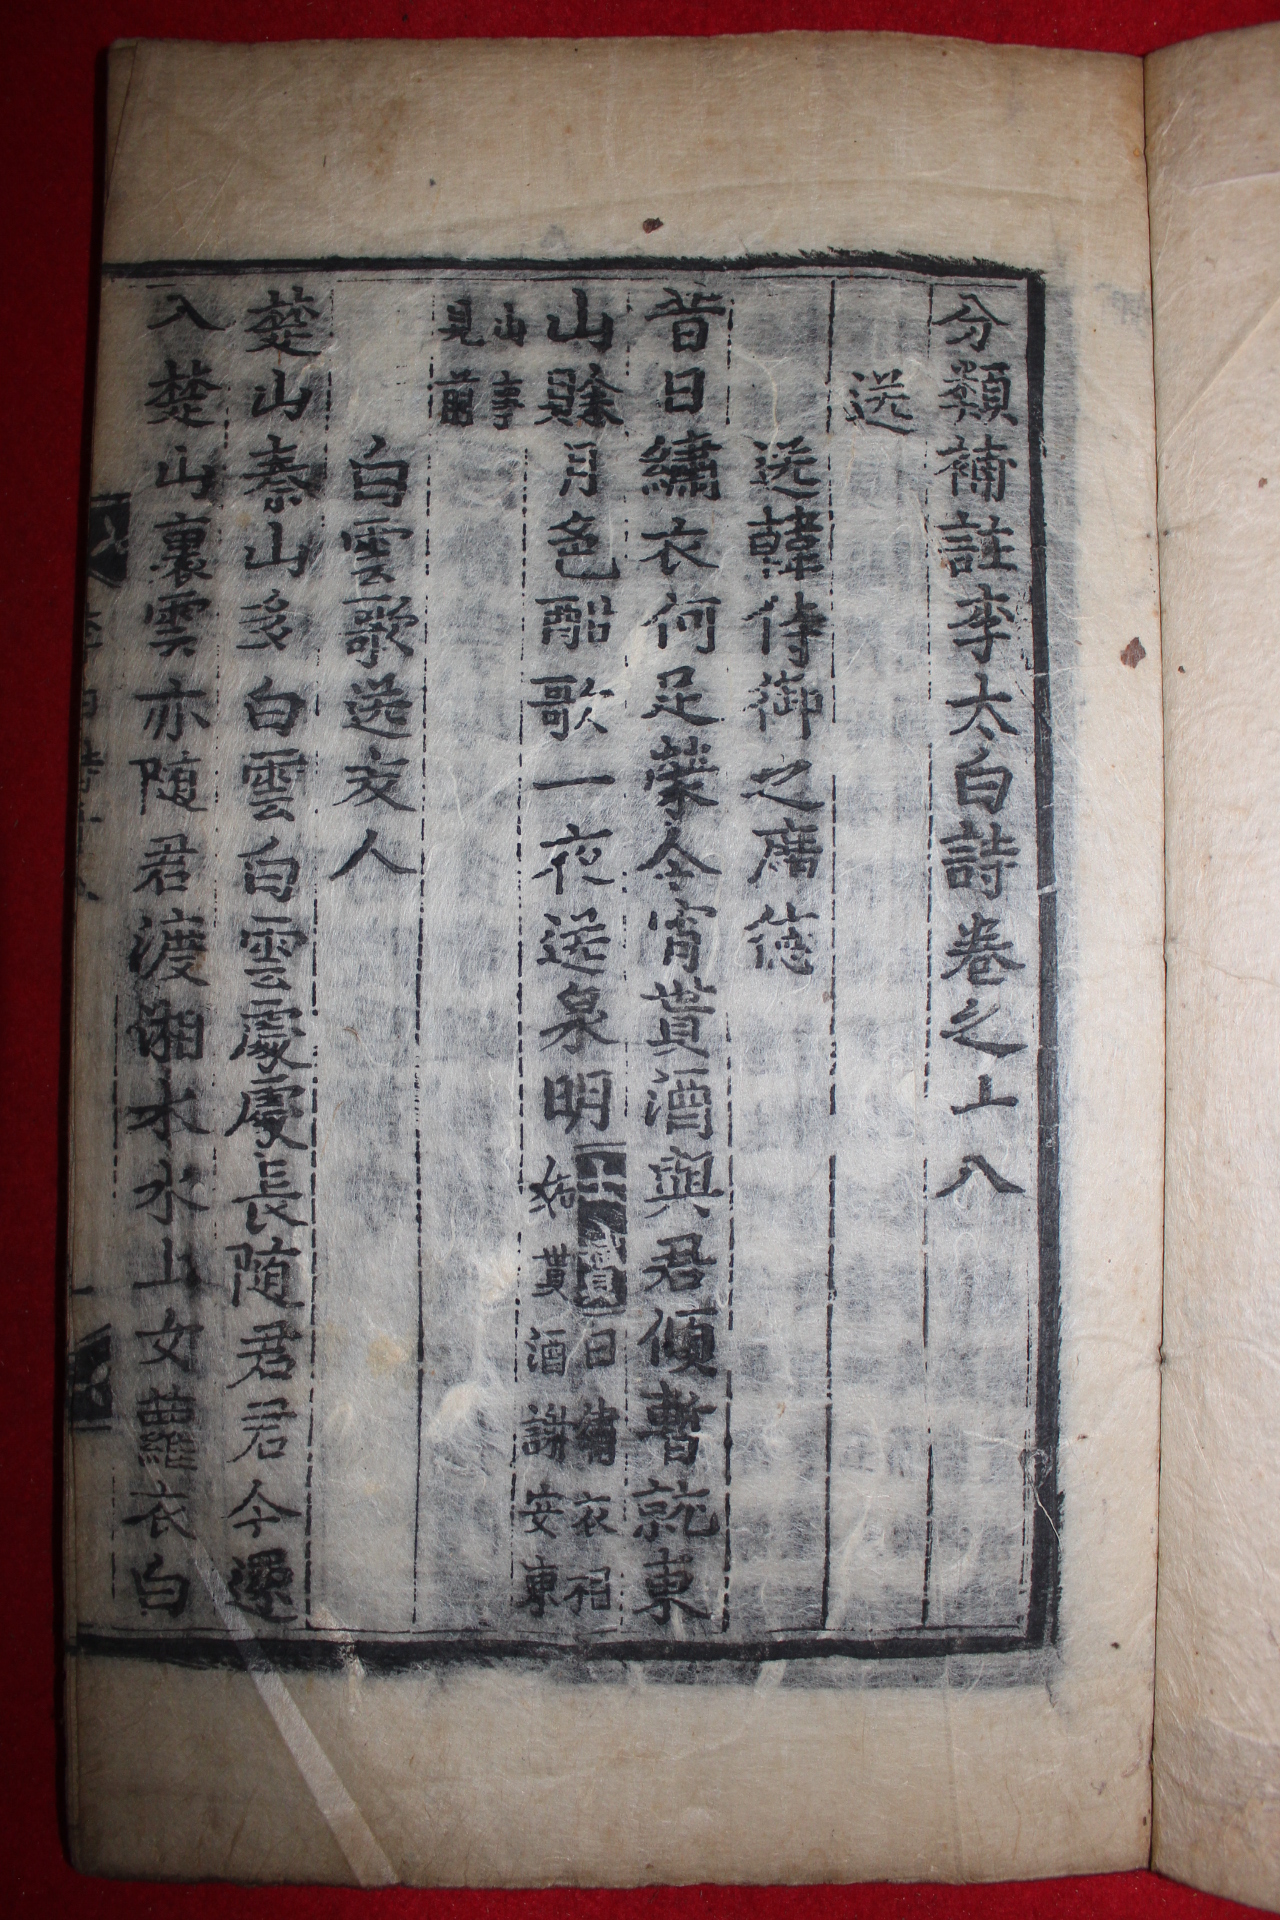 分類補註李太白詩卷之十八
送
送韓侍御之廣德
昔日繡衣何足榮今宵貰酒與君傾暫就東
山賖月色酣歌一夜送泉明
士贇曰繡衣
貰酒謝安東
山事
見前
白雲歌送友人
楚山秦山多白雲白雲處處長随君君今還
入楚山裏雲亦随君渡湘水水上女蘿衣白